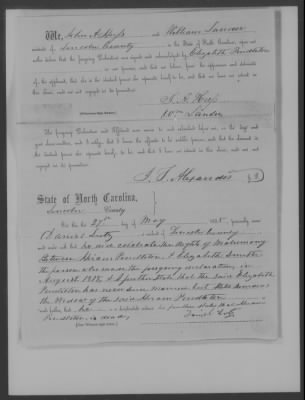 We, John A Huss and William Lander
residents of Lincoln County in the State of North Carolina, upon our
oaths declare that the foregoing Declaration was signed and acknowledged by Elizabeth Pendleton
in our presence, and that we believe from the appearance and statements
of the applicant, that she is the identical person she represents herself to be, and that we have no interest in
this claim, and are not engaged in its prosecution.
J. A. Huss
Wm Lander
The foregoing Declaration and Affidavit were sworn to and subscribed before me, on the day and
year above written; and I certify, that I know the affiants to be credible persons; that the claimant is
the identical person she represents herself to be, and that I have no interest in this claim, and am not
engaged in its prosecution.
J. T. Alexander
State of North Carolina,
Lincoln County
On this the 27th day of May 185
Daniel Lutz a resident of Lincoln County
and made oath that he did celebrate the Rights of Matrimony
Between Hiram Pendleton & Elizabeth
the person who made the foregoing declaration, in
August 18 & I further state that the said Elizabeth
Pendleton has never been married but still remains
the Widow of the said Hiram Pendleton
and further, that he
Pendleton is dead,
Daniel Lutz